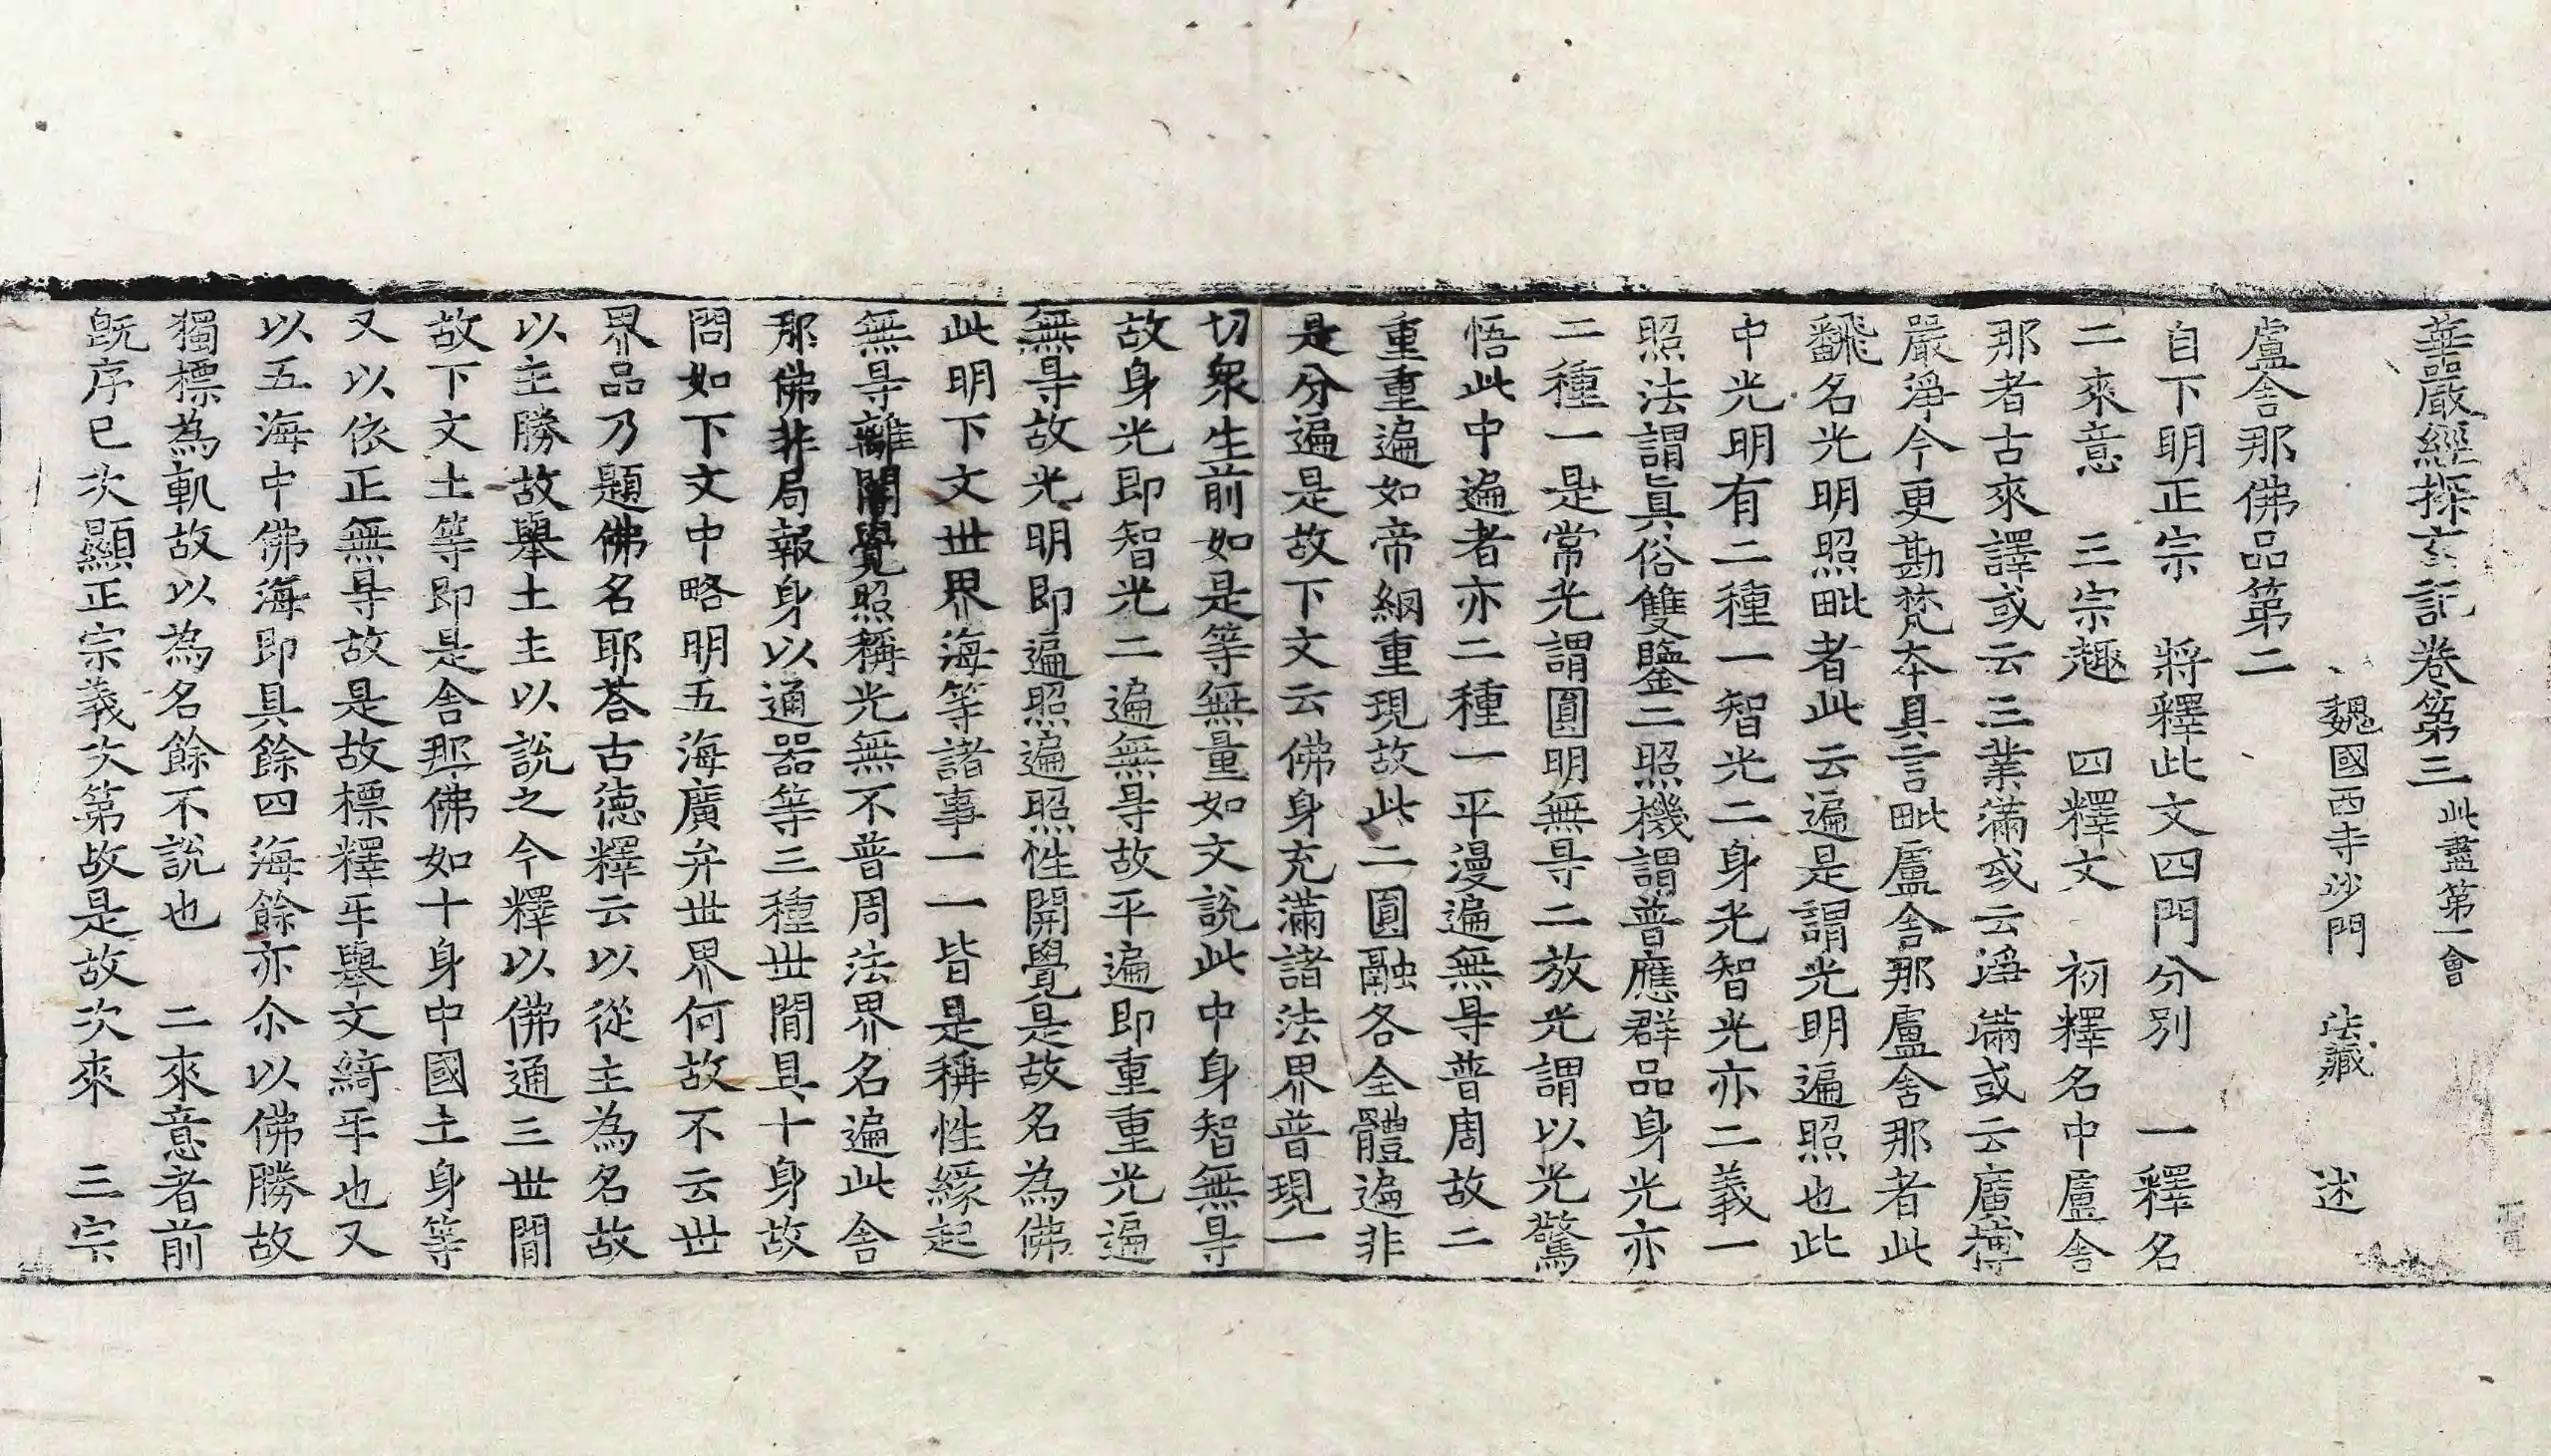 華嚴經探玄記卷第三 此盡第一會
魏國西寺沙門 法藏 述
盧舍那佛品第二
自下明正宗 將釋此文四門分別 一釋名
二來意 三宗趣 四釋文 初釋名中盧舍
那者古來譯或云三業滿或云淨滿或云廣博
嚴淨今更勘梵本具言毗盧舍那盧舍那者此
飜名光明照毗者此云遍是謂光明遍照也此
中光明有二種一智光二身光智光亦二義一
照法謂真俗雙鑒二照機謂普應群品身光亦
二種一是常光謂圓明無㝵二放光謂以光驚
悟此中遍者亦二種一平漫遍無㝵普周故二
重重遍如帝網重現故此二圓融各全體遍非
是分遍是故下文云佛身充滿諸法界普現一
切衆生前如是等無量如文說此中身智無㝵
故身光即智光二遍無㝵故平遍即重重光遍
無㝵故光明即遍照遍照性開覺是故名為佛
此明下文世界海等諸事一一皆是稱性緣起
無㝵離闇覺照稱光無不普周法界名遍此舍
那佛非局報身以通器等三種世間具十身故
問如下文中略明五海廣弁世界何故不云世
界品乃題佛名耶荅古德釋云以從主為名故
以主勝故舉土主以說之今釋以佛通三世間
故下文土等即是舍那佛如十身中國土身等
又以依正無㝵故是故標釋㸦舉文綺㸦也又
以五海中佛海即具餘四海餘亦尒以佛勝故
獨標為軌故以為名餘不說也 二來意者前
旣序已次顯正宗義次第故是故次來 三宗